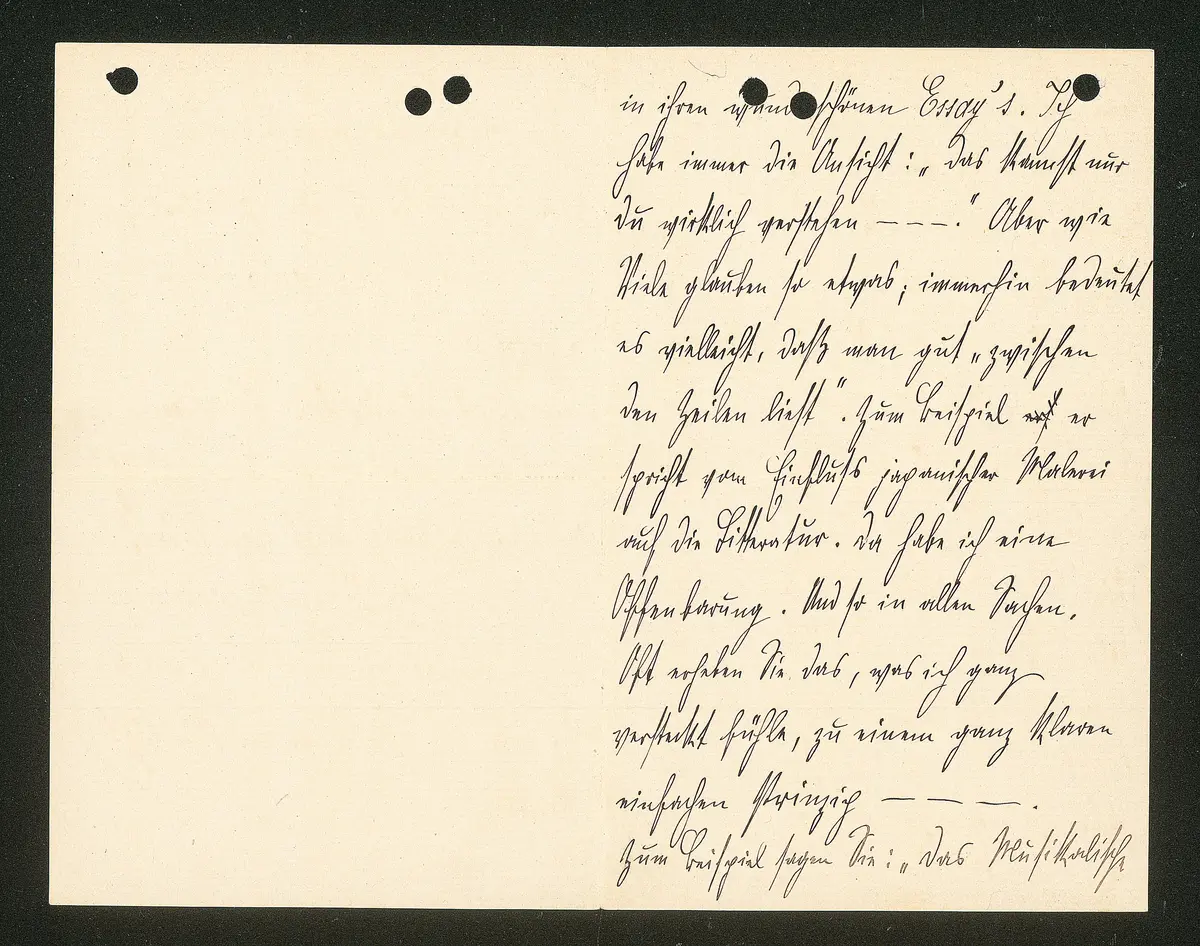 in ihren wunderschönen Essay's. Ich
habe immer die Ansicht: „das kannst nur
du wirklich verstehen — — —." Aber wie
Viele glauben so etwas; immerhin bedeutet
es vielleicht, daß man gut „zwischen
den Zeilen liest". Zum Beispiel er
spricht vom Einfluss japanischer Malerei
auf die Litteratur. Da habe ich eine
Offenbarung. Und so in allen Sachen.
Oft erheben Sie das, was ich ganz
versteckt fühle, zu einem ganz klaren
einfachen Prinzip — — —.
Zum Beispiel sagen Sie: „Das Musikalische